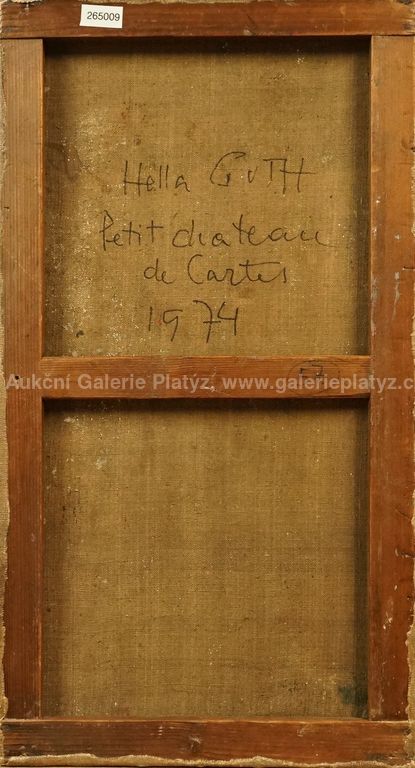 265009
Hella GUTH
Petit chateau
de Cartes
1974
Aukcní Galerie Platýz, www.galerieplatyz.c